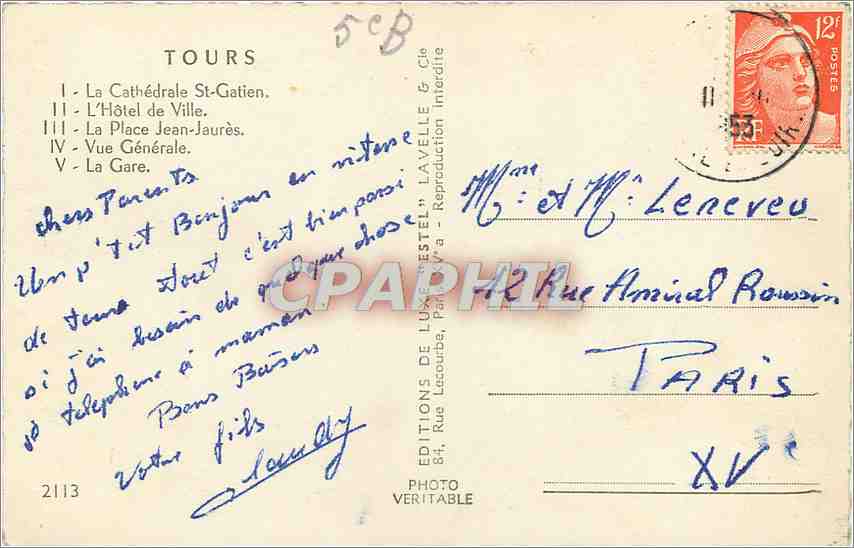 5eB
TOURS
I - La Cathédrale St-Gatien.
II - L'Hôtel de Ville.
III - La Place Jean-Jaurès.
IV - Vue Générale.
V - La Gare.
chers Parents
Un p'tit Bonjour en vitesse
de tours tout c'est bien passé
si j'ai besoin de quelque chose
je telephone à maman
Bons Baisers
Votre fils
2113
EDITIONS DE LUXE "ESTEL" LAVELLE & Cie
84, Rue Lecourbe, Paris XVe - Reproduction Interdite
PHOTO
VERITABLE
12F
POSTES
RF
11
1953
Mme et Mr Leneveu
12 Rue Amiral Roussin
PARIS
XVe
CPAPHIL